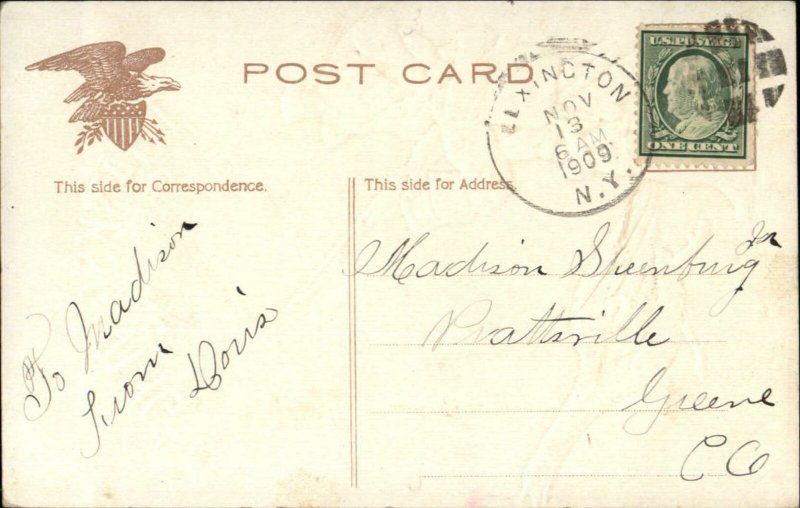 POST CARD
LEXINGTON
NOV
13
6 AM
1909
N.Y.
U.S. POSTAGE
ONE CENT
This side for Correspondence.
This side for Address.
To Madison
from
Doris
Madison Speenburg Jr
Prattsville
Greene
Co